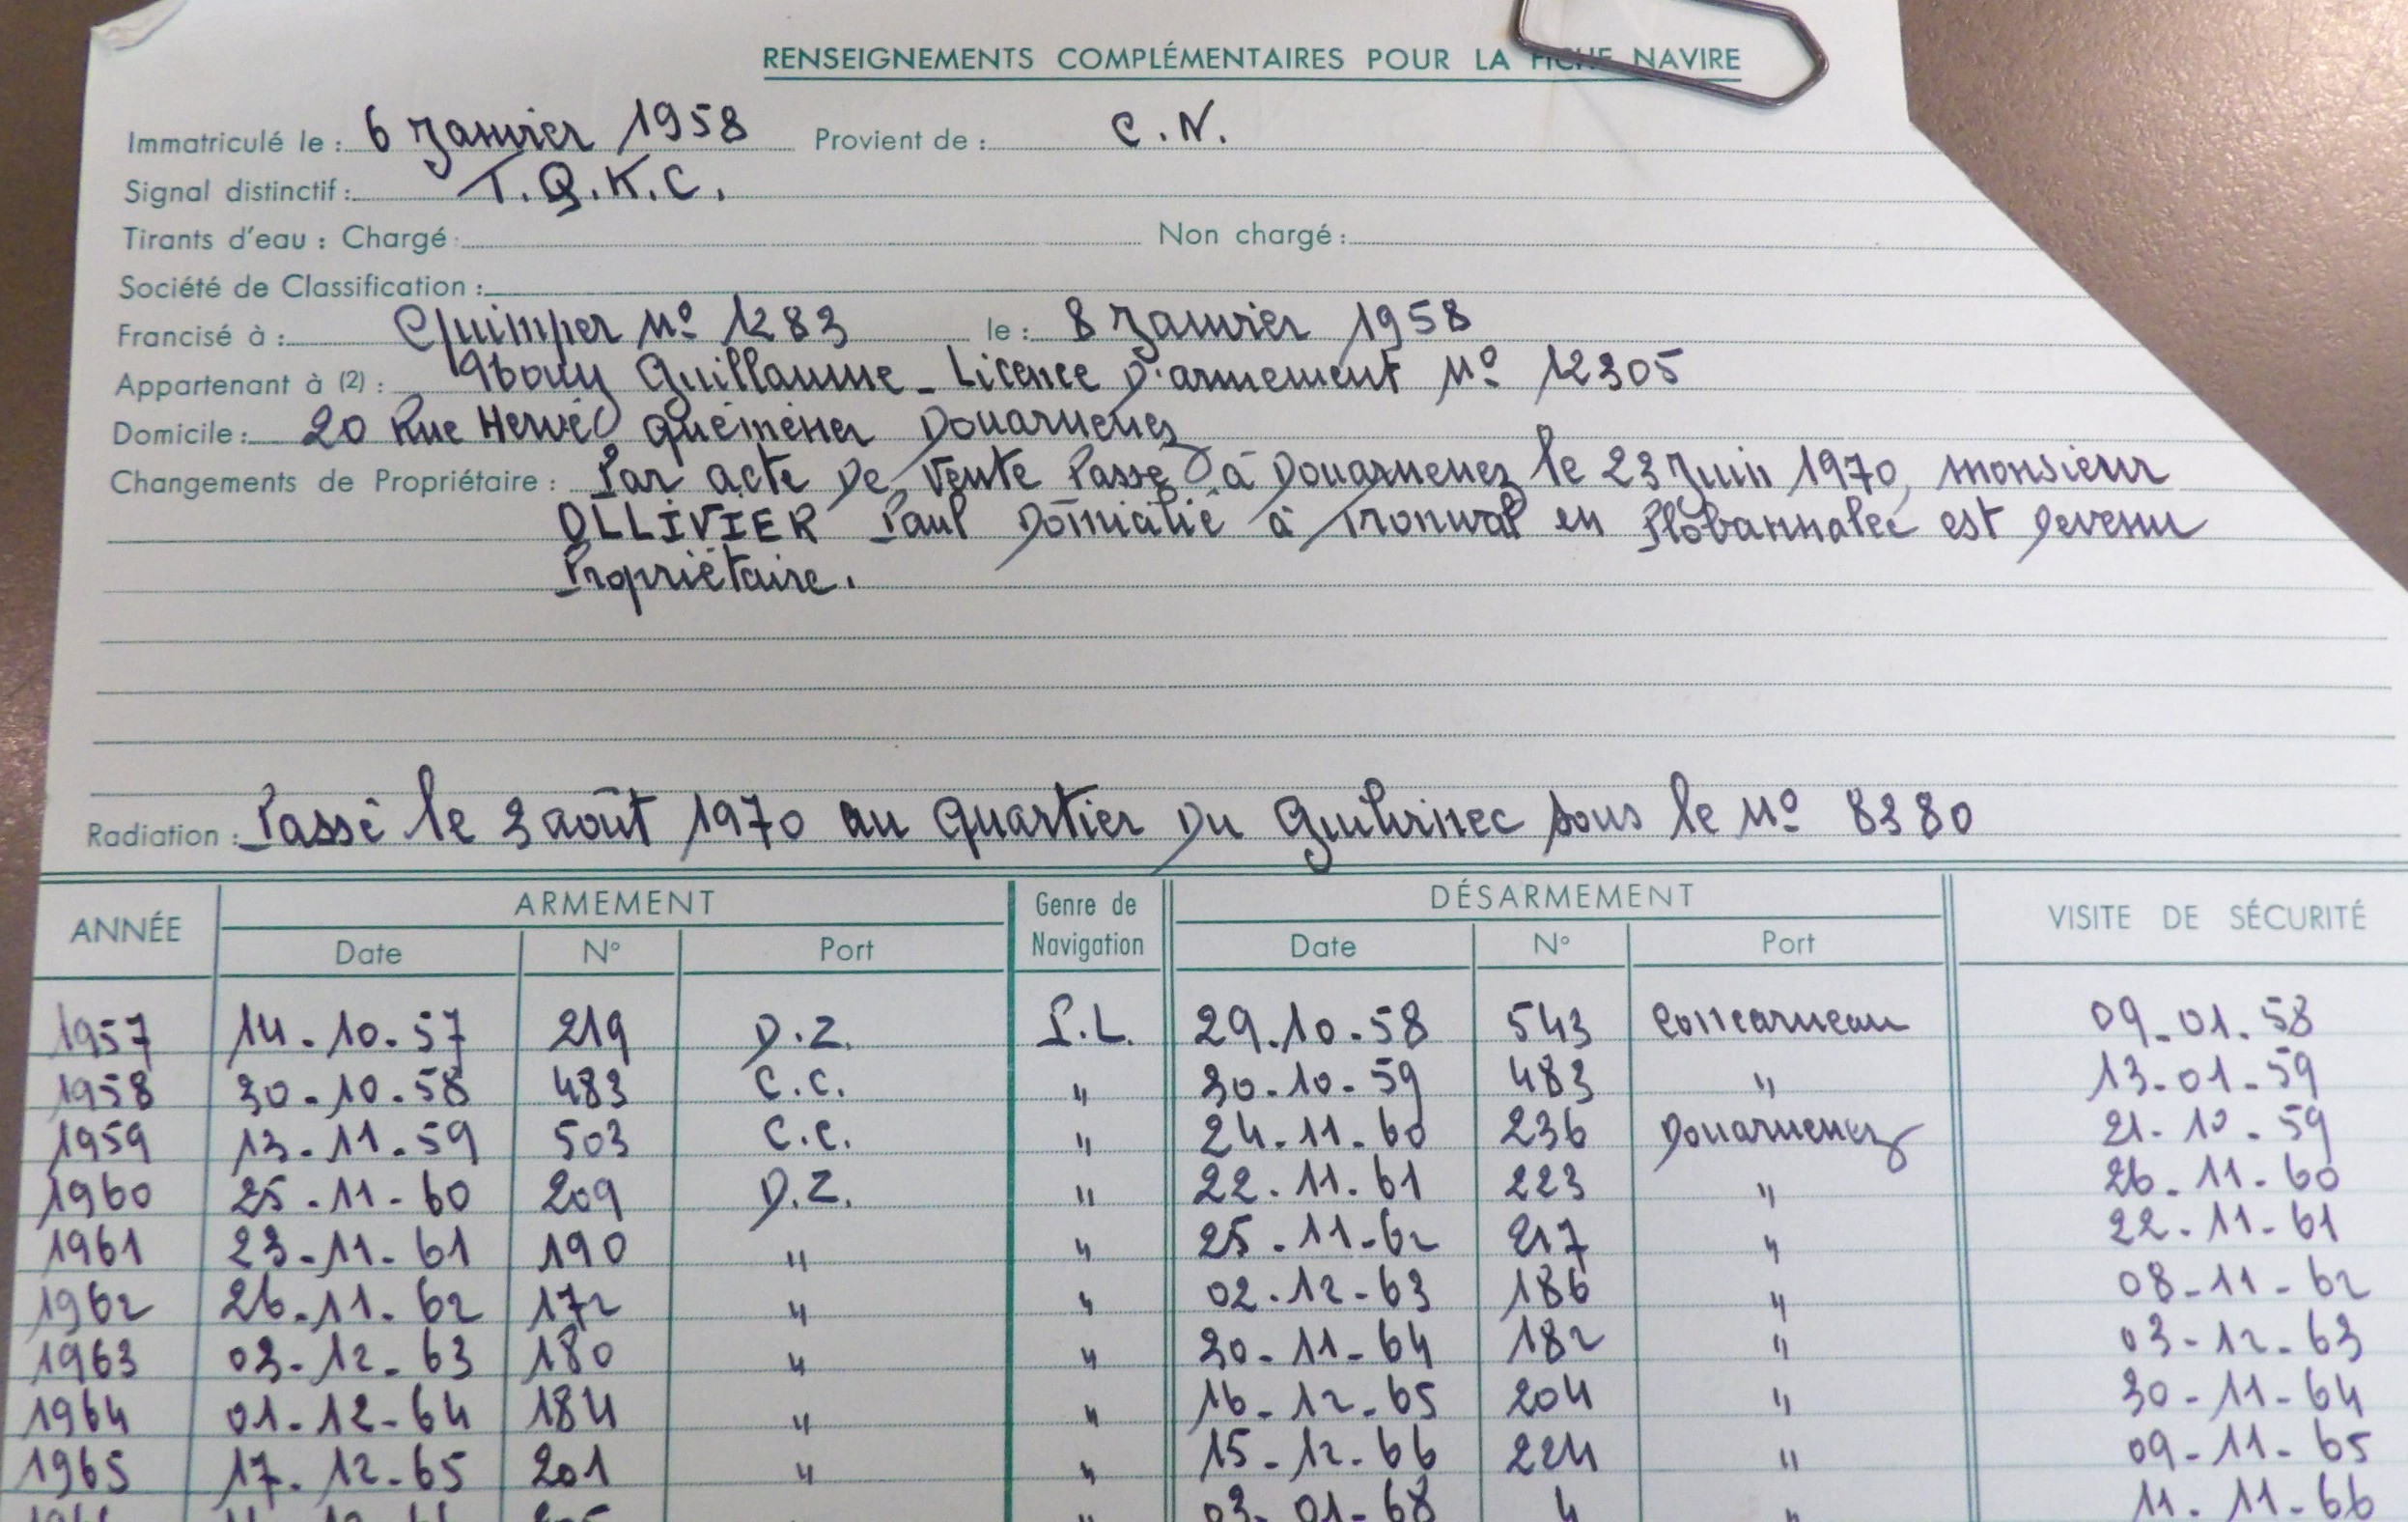 RENSEIGNEMENTS COMPLÉMENTAIRES POUR LA FICHE NAVIRE
Immatriculé le : 6 Janvier 1958 Provient de : C.N.
Signal distinctif : T.Q.K.C.
Tirants d'eau : Chargé : Non chargé :
Société de Classification :
Francisé à : Quimper N° 1283 le : 8 Janvier 1958
Appartenant à (2) : Guillaume - Licence D'armement N° 12305
Domicile : 20 Rue Hervé Quéméner Douarnenez
Changements de Propriétaire : Par acte De Vente Passé à Douarnenez le 23 Juin 1970, monsieur
OLLIVIER Paul Domicilié à Tronval en Plobannalec est Devenu
Propriétaire.
Radiation : Passé le 3 août 1970 au Quartier Du Guilvinec sous le N° 8380
ANNÉE ARMEMENT Genre de Navigation DÉSARMEMENT VISITE DE SÉCURITÉ
Date N° Port Date N° Port
1957 14-10-57 219 D.Z. P.L. 29.10-58 543 Concarneau 09-01.58
1958 30-10.58 483 C.C. " 30-10-59 483 " 13-01-59
1959 13-11.59 503 C.C. " 24-11-60 236 Douarnenez 21-10-59
1960 25-11-60 209 D.Z. " 22.11.61 223 " 26-11-60
1961 23-11-61 190 " " 25-11-62 217 " 22-11-61
1962 26-11.62 172 " " 02-12-63 186 " 08-11-62
1963 03-12-63 180 " " 30-11-64 182 " 03-12-63
1964 01-12-64 184 " " 16-12-65 204 " 30-11-64
1965 17-12-65 201 " " 15-12-66 224 " 09-11-65
" 03-01-68 4 " 11-11-66